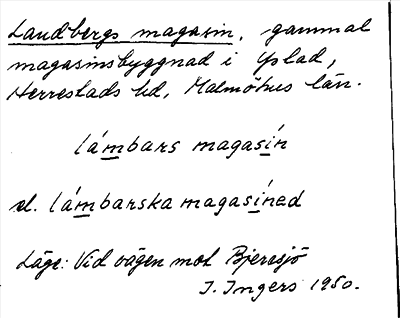 Landbergs magasin, gammal
magasinsbyggnad i Ystad,
Herrestads hd, Malmöhus län.
lámbars magasín
el. lámbarska magasíned
Läge: Vid vägen mot Bjeresjö
I. Ingers 1950.